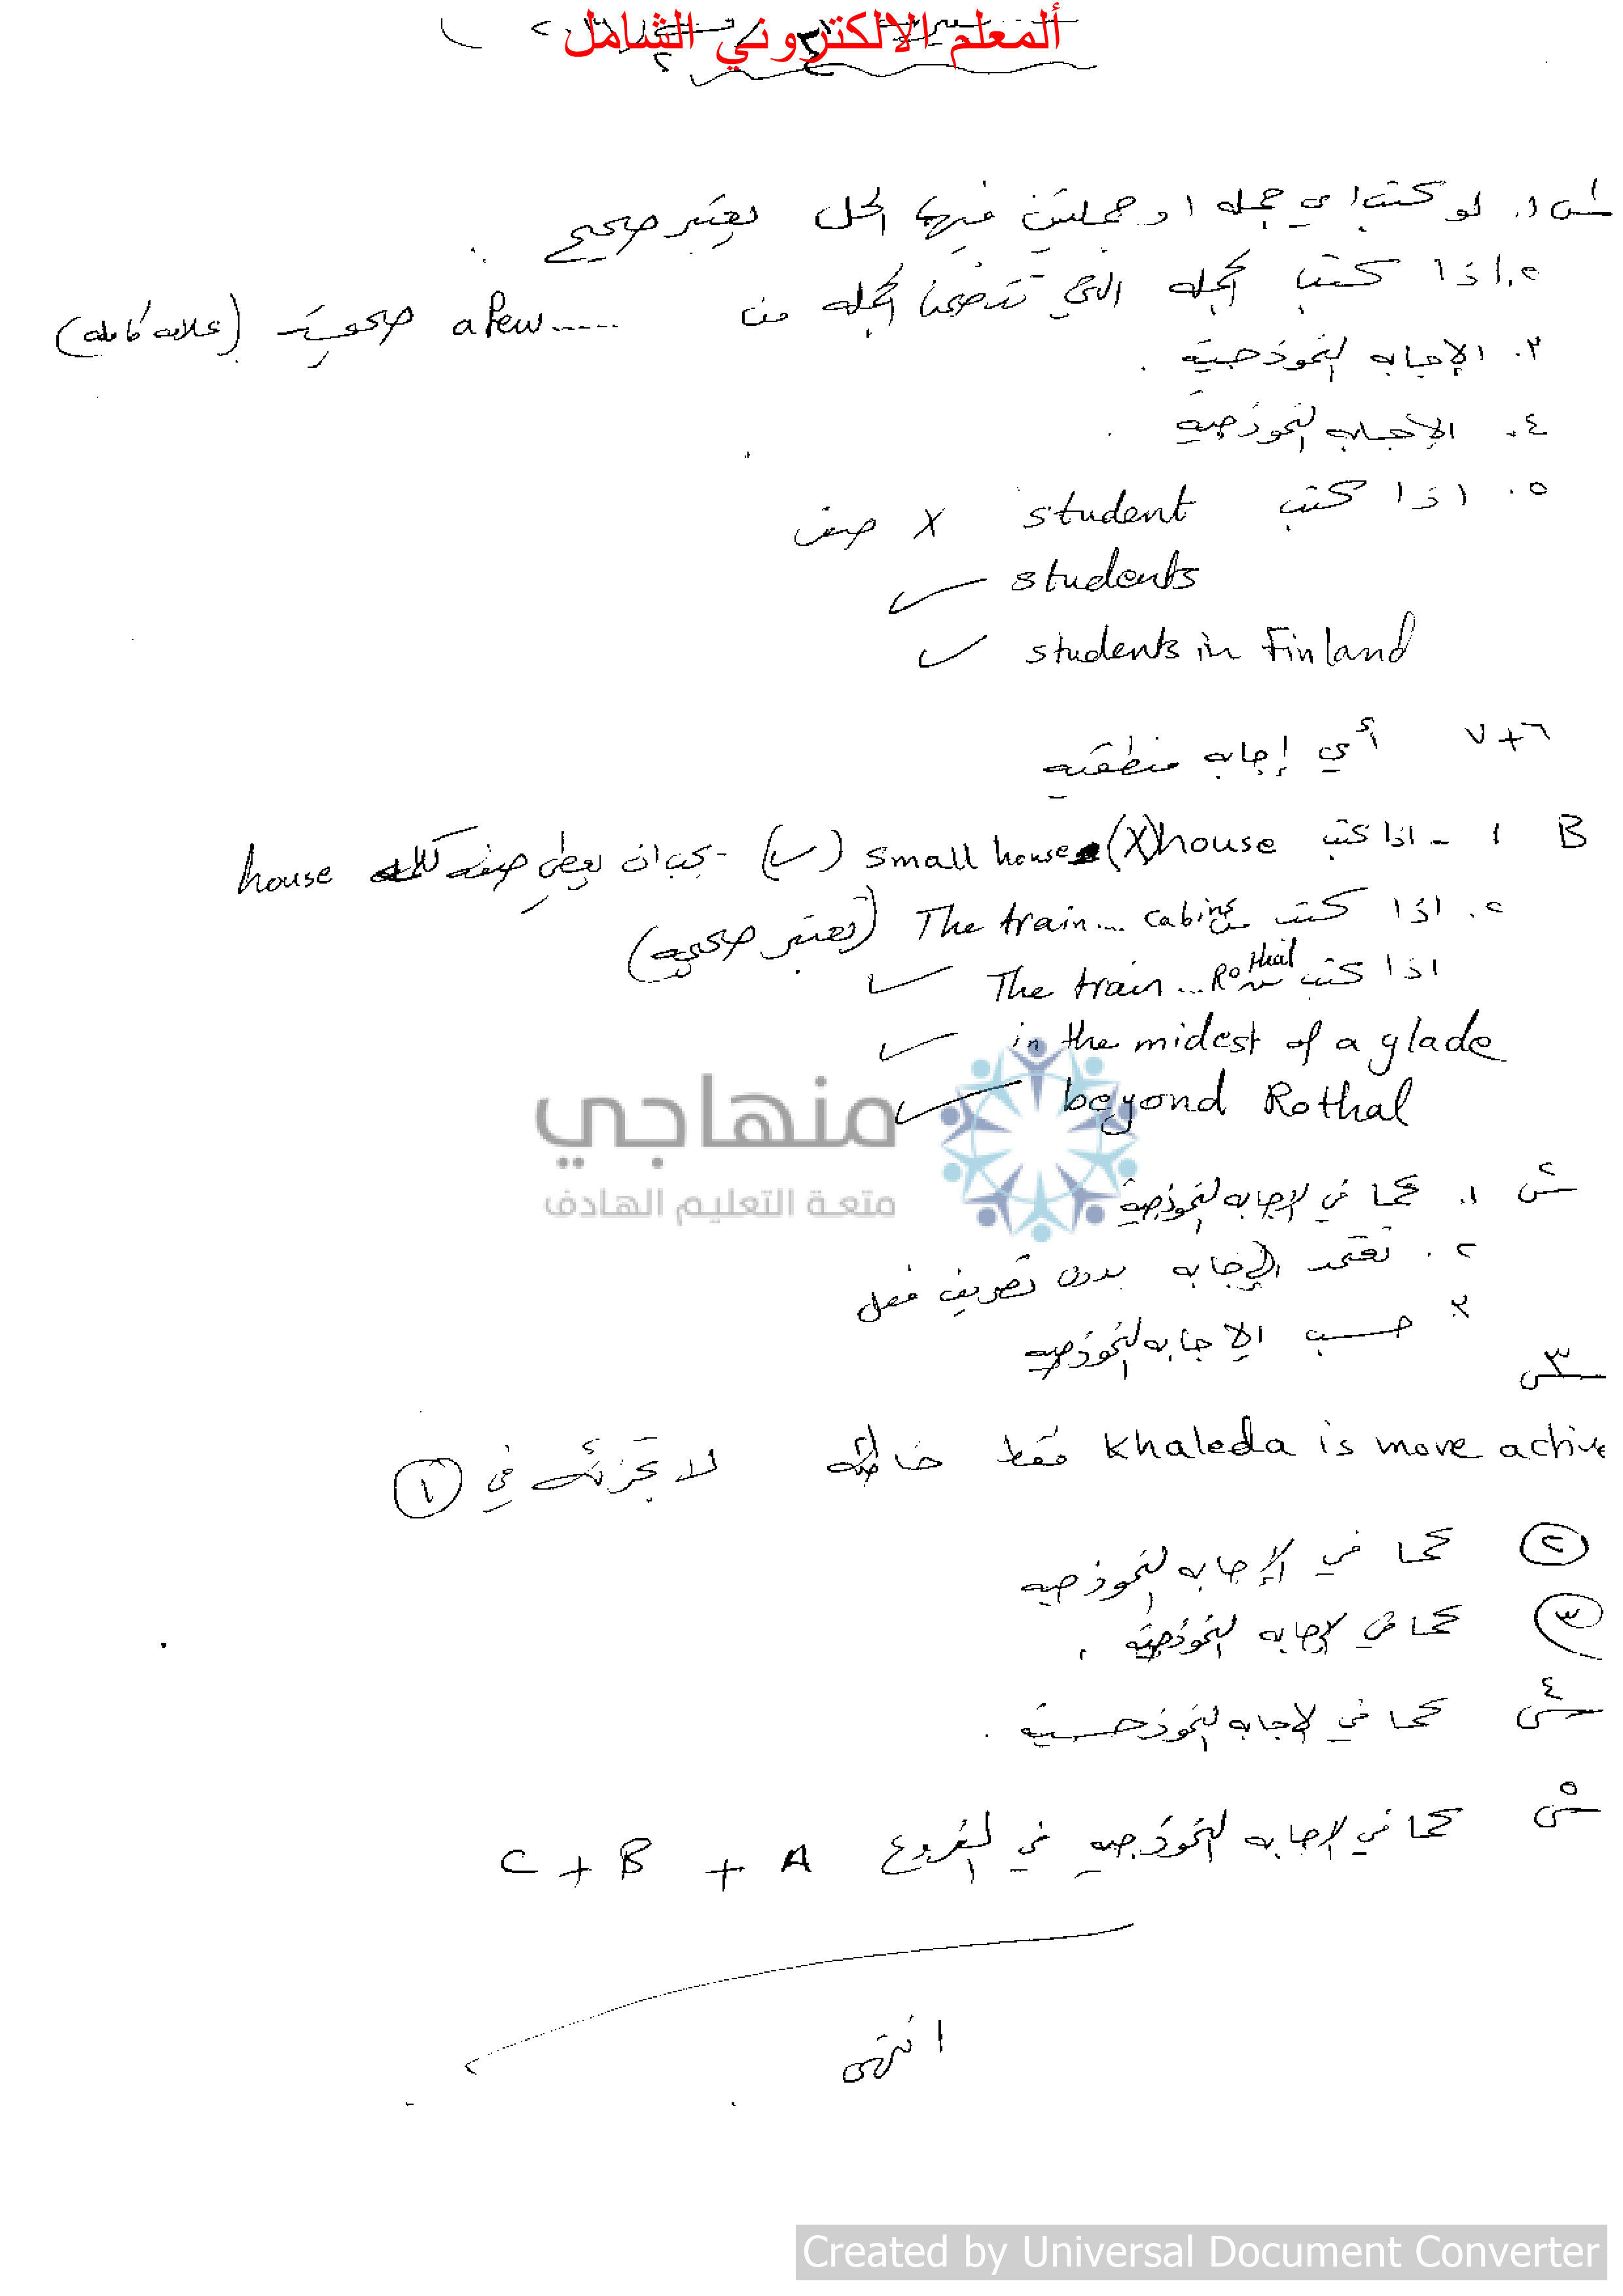 ألمعلم الالكتروني الشامل
س١ ١. لو كتب اي جمله او جملتين فيها الحل يعتبر صحيح .
٢. اذا كتب الجمله التي تتضمن الجمله من ..... a few صحيحة (علامه كامله)
٣. الإجابه النموذجية .
٤. الإجابه النموذجيه .
٥. اذا كتب student X صفر
students ✓
students in Finland ✓
٦+٧ أي إجابه منطقيه
B ١ - اذا كتب house (X) small house (✓) - يجب ان يعطي صفه لكلمه house
٢. اذا كتب من The train... cabin (تعتبر صحيحه)
اذا كتب من The train... Rothal ✓
in the midest of a glade ✓
beyond Rothal ✓
منهاجي
متعة التعليم الهادف
س٢ ١. كما في الاجابه النموذجية
٢. تعتمد الإجابه بدون تصريف فعل
٣ حسب الاجابه النموذجيه
س٣
Khaleda is more active فقط خاطئه لا تجزئه في ①
② كما في الإجابه النموذجيه
③ كما في الإجابه النموذجية .
س٤ كما في الاجابه النموذجية .
س٥ كما في الاجابه النموذجيه في الفروع A + B + C
انتهى
Created by Universal Document Converter